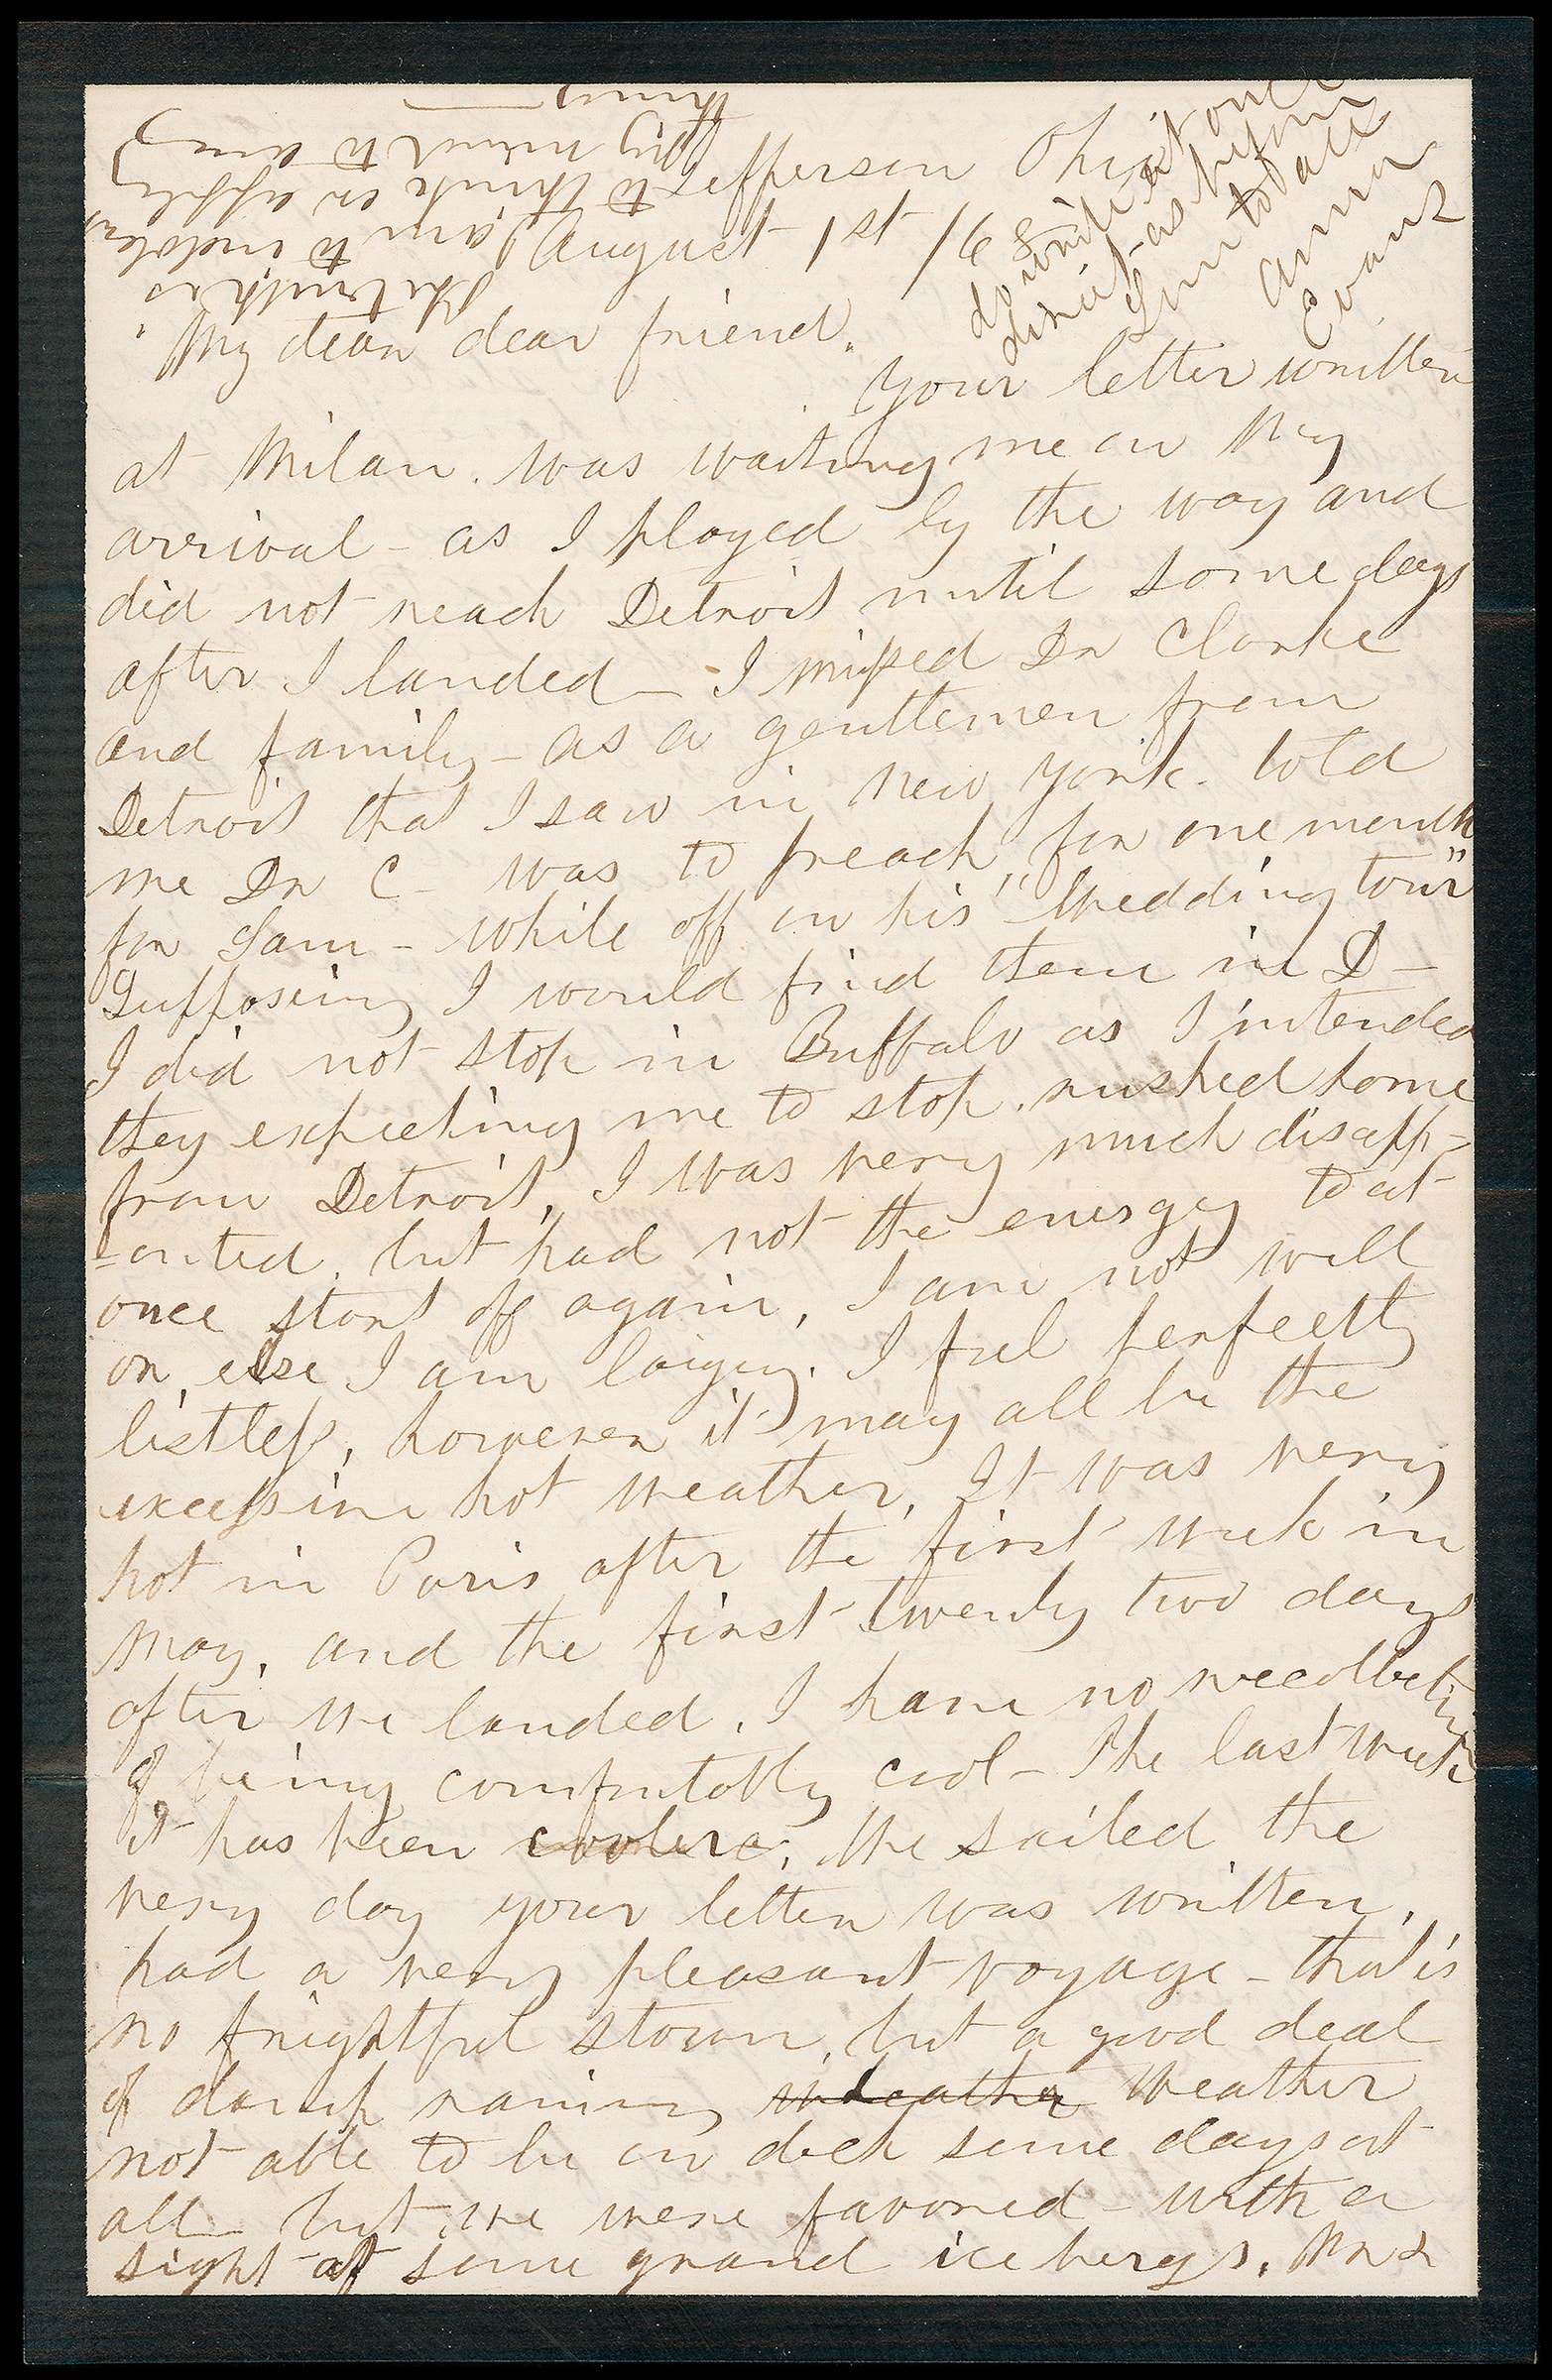 Jefferson Ohio
August 1st /68
My dear dear friend.
Your letter written
at Milan. was waiting me on my
arrival - as I played by the way and
did not reach Detroit until some days
after I landed - I missed Dr Clarke
and family - as a genttemen from
Detroit that I saw in New York. told
me Dr C - was to preach, for one month
for Sam - while off on his "Wedding tour"
Supposing I would find them in D -
I did not stop in Buffalo as I intended
they expecting me to stop. rushed home
from Detroit, I was very much disapp-
-ointed, but had not the energy to at
once start off again, I am not well
or else I am laizy. I feel perfectly
listless, however it may all be the
excessive hot weather, It was very
hot in Paris after the first week in
May, and the first twenty two days
after we landed, I have no recollection
of being comfortably cool - The last week
it has been cooler. We sailed the
very day your letter was written,
had a very pleasant voyage - that is
no frightful storm, but a good deal
of damp rainy weather
not able to be on deck some days at
all - but we were favored - with a
sight of some grand icebergs. Mr &
The truth is
I am to indolent
to think or apply
my mind to any
thing
do write at once
direct as before
Love to all
Anna
Evans